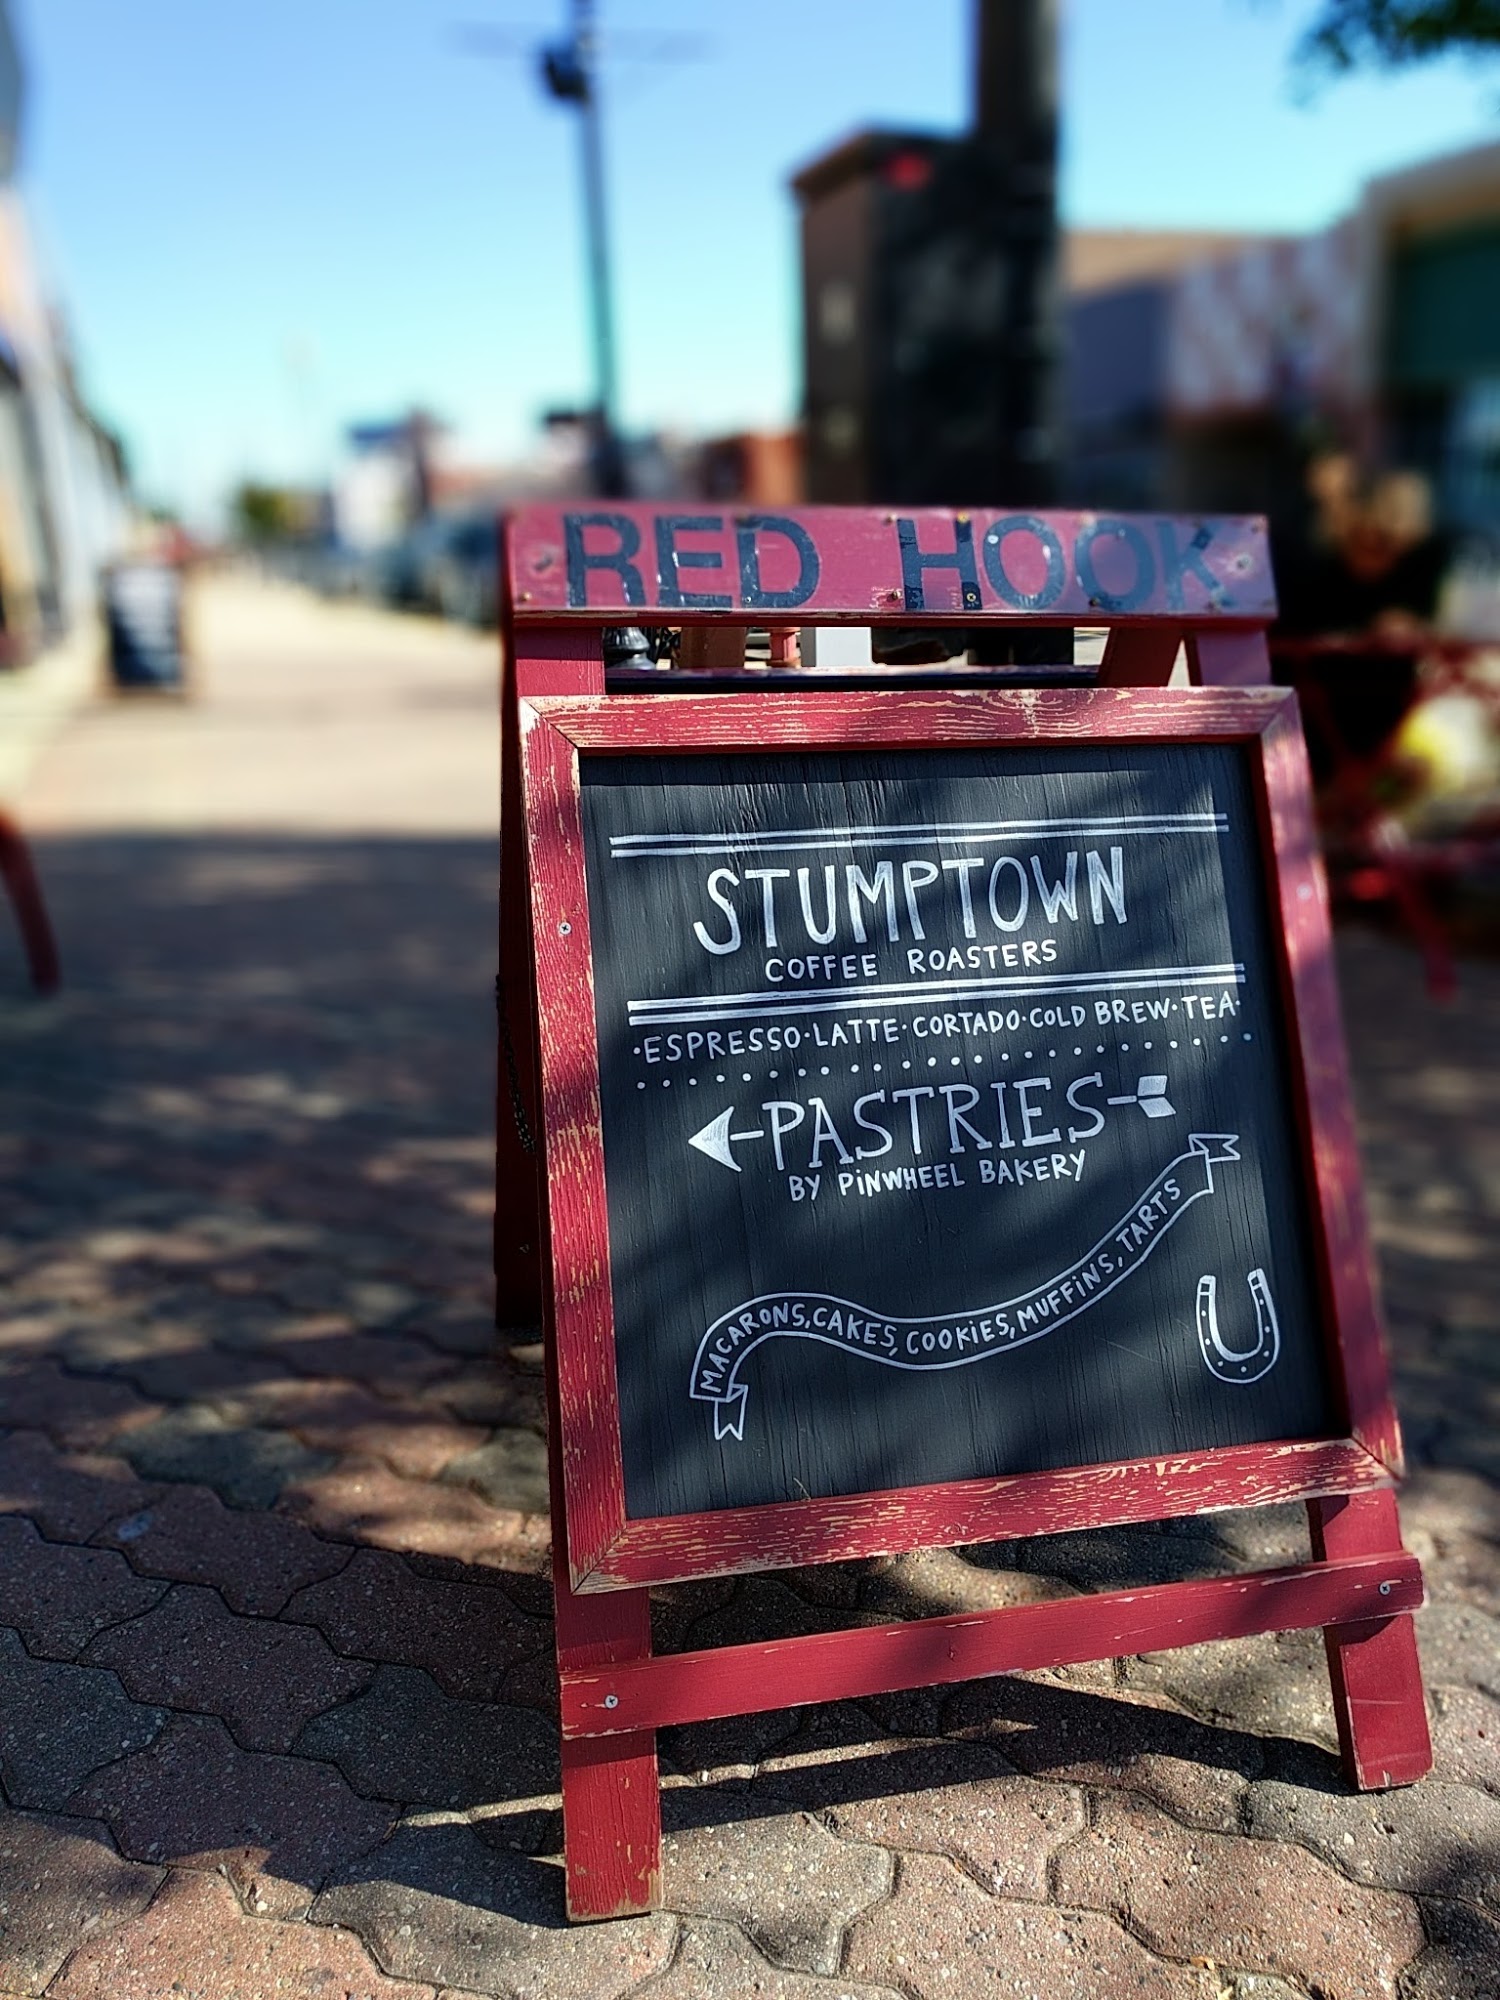 RED HOOK
STUMPTOWN
COFFEE ROASTERS
·ESPRESSO·LATTE·CORTADO·COLD BREW·TEA·
PASTRIES
BY PINWHEEL BAKERY
MACARONS, CAKES, COOKIES, MUFFINS, TARTS